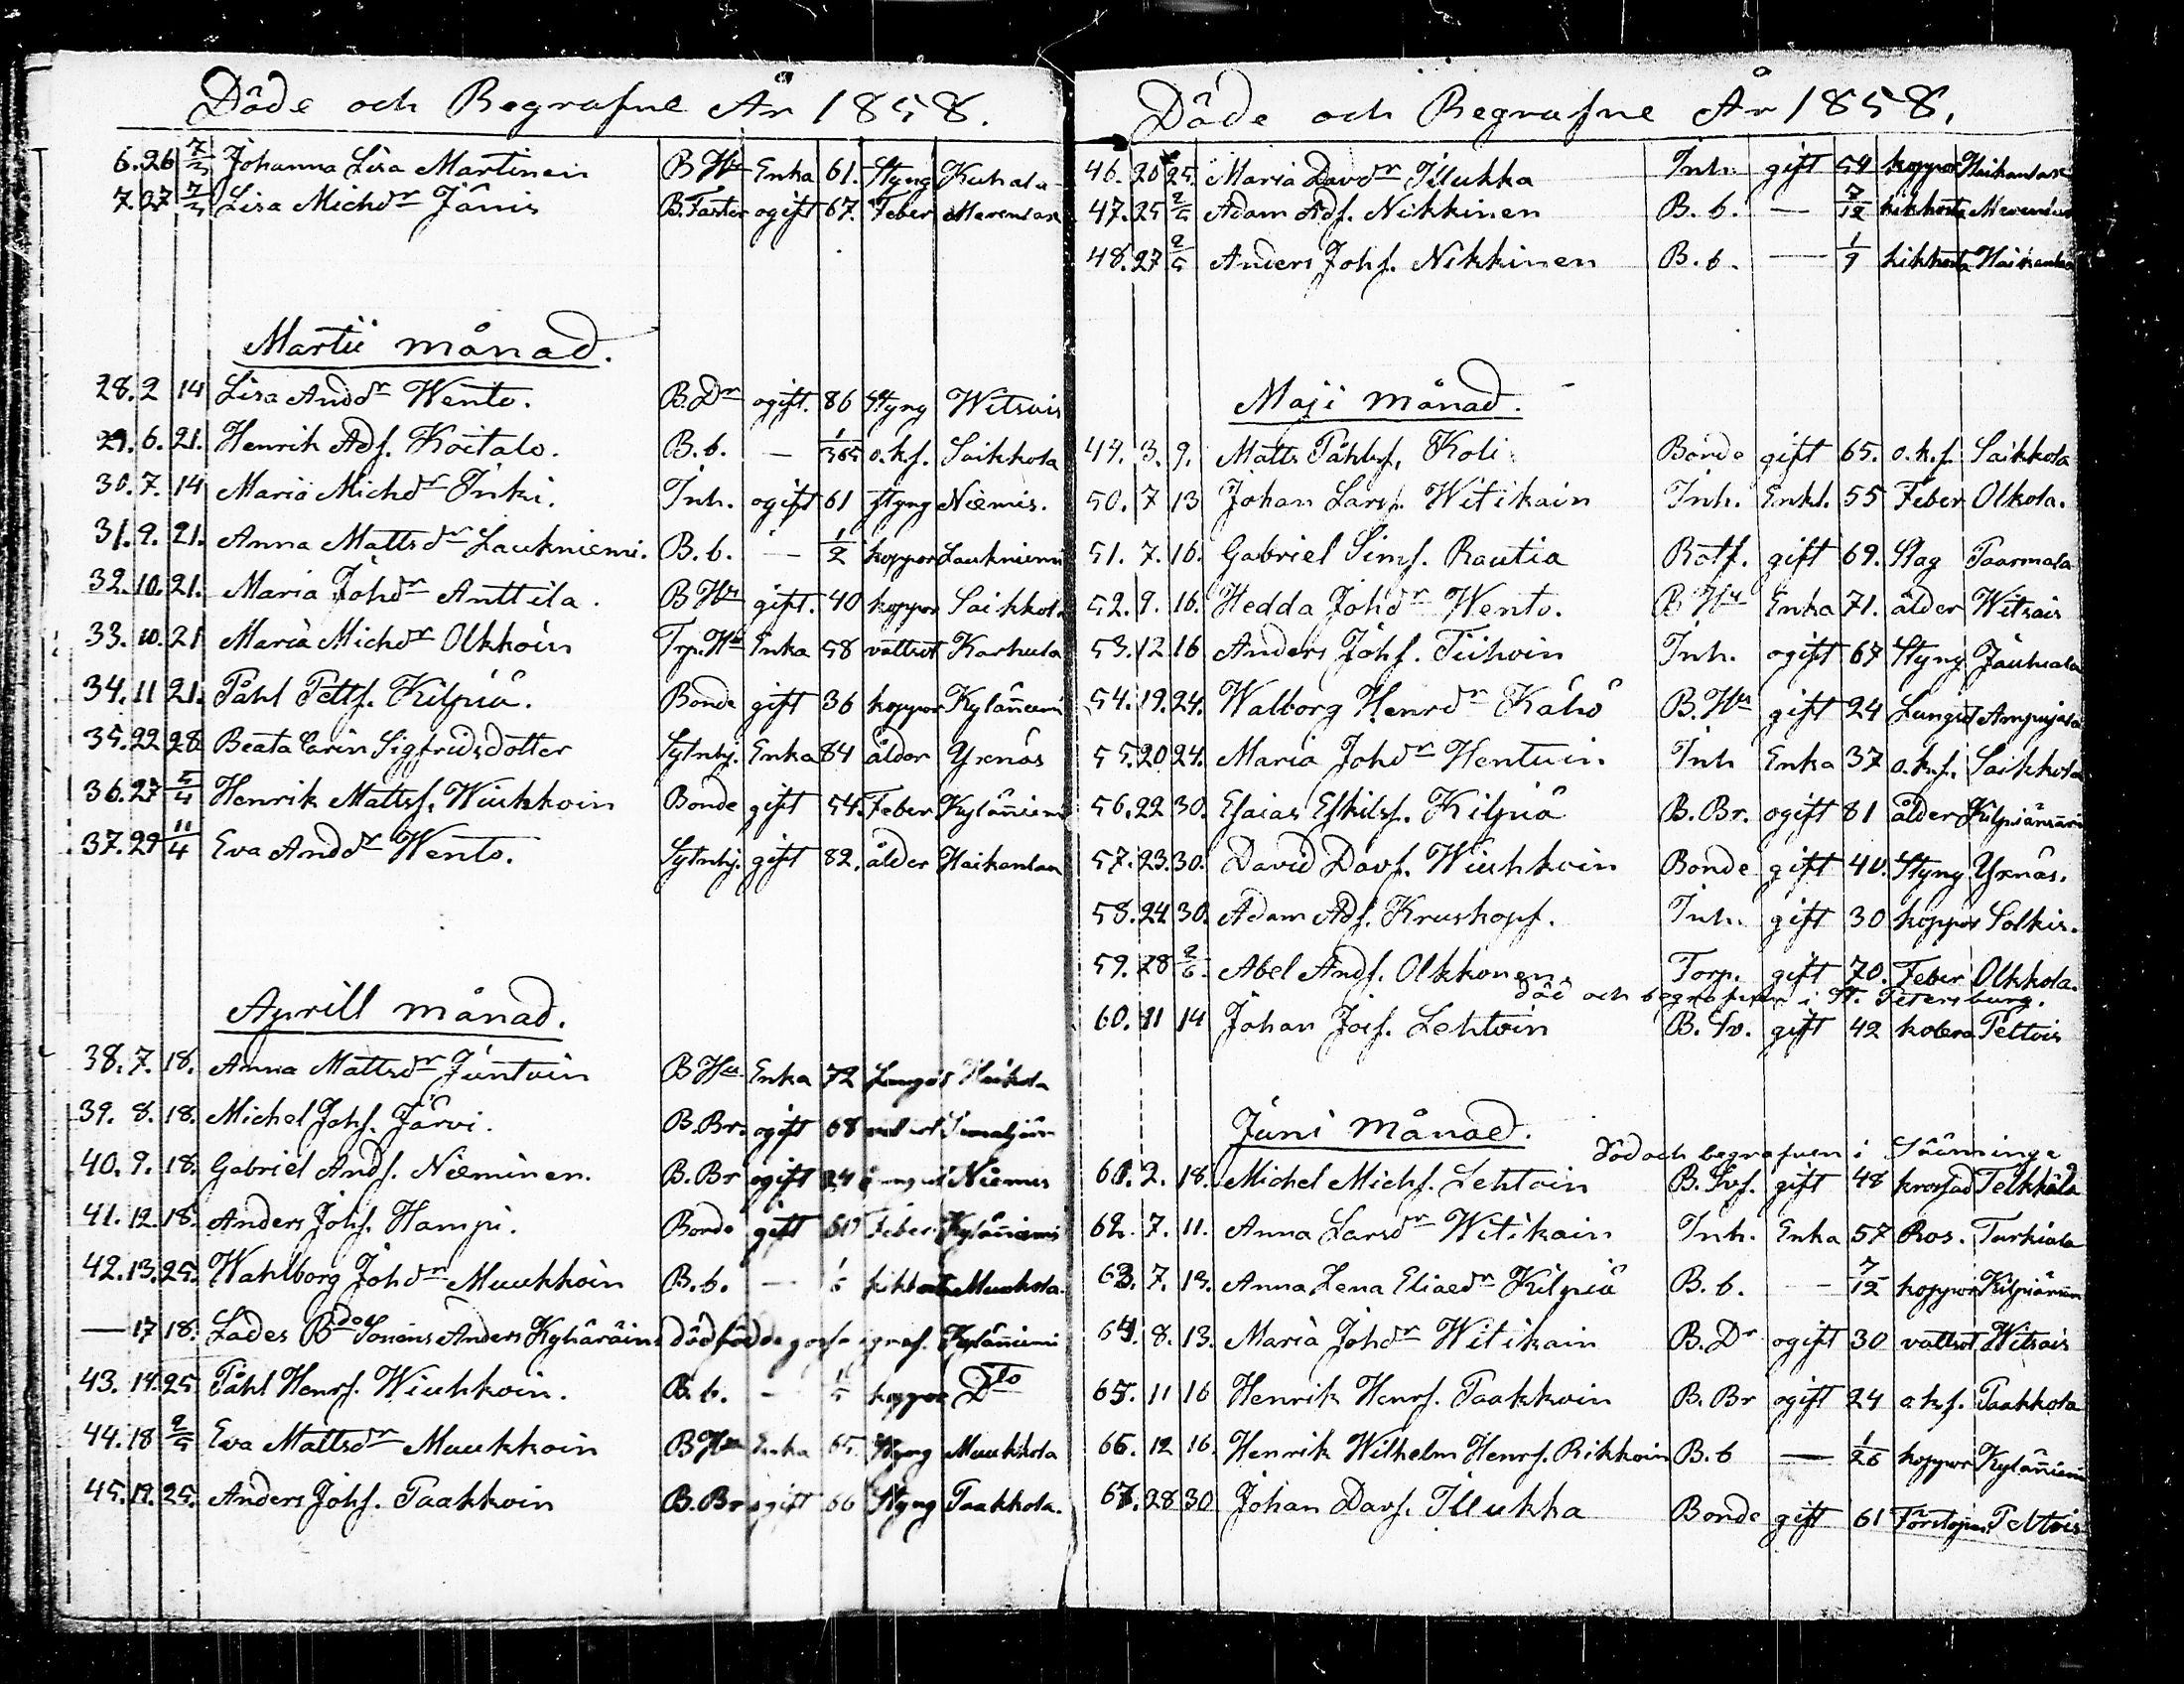 Döde och Begrafne År 1858.
6. 26 7/3 Johanna Lisa Martinen B Hu Enka 61. Styng Kuhala
7. 27 7/3 Lisa Michdr Jänis B. Faster ogift 67. Feber
Martii månad.
28. 2 14 Lisa Anddr Wento. B. Dr ogift. 86 Styng Witsais
29. 6. 21. Henrik Adf. Koitalo. B. b. — 1/365 o.k.s. Saikkola
30. 7. 14 Maria Michdr Inki. Inh. ogift 61 styng Niemis.
31. 9. 21. Anna Mattsdr Laukniemi. B. b. — 1/2 koppor Laukniemi
32. 10. 21. Maria Johdr Anttila. B Hu gift. 40 koppor Saikkola
33. 10. 21 Maria Michdr Olkkoin Trp. Hu Enka 58 vattsot Karhula
34. 11 21. Påhl Pettf. Kilpiä. Bonde gift 36 koppor Kyläniemi
35. 22 28 Beata Carin Sigfridsdotter Sytnhj. Enka 84 ålder Yxnäs
36. 27 5/4 Henrik Mattsf. Wiukkoin Bonde gift 54. Feber Kyläniemi
37. 29 11/4 Eva Anddr Wento. Sytnhj. gift 82. ålder Haikanlax
Aprill månad.
38. 7. 18. Anna Mattsdr Juntoin B Hu Enka 72 Lungsot
39. 8. 18. Michel Johf. Järvi. B. Br. ogift 68
40. 9. 18. Gabriel Andf. Nieminen. B. Br ogift 24 Niemis
41. 12. 18. Anders Johf. Hampi. Bonde gift 60 Feber Kyläniemi
42. 13. 25. Wahlborg Johdr Muukkoin B. b. — kikhosta Muukola.
— 17 18. Lades Bdesonens Anders Kyhäräin dödfödde gosse Kyläniemi
43. 14. 25 Påhl Henrf. Wiuhkoin. B. b. — 1/5 koppor Dto
44. 18 2/5 Eva Mattsdr Muukkoin B Hu Enka 65. Styng Muukkola
45. 19. 25. Anders Johf. Taakkoin B. Br ogift 60 Styng Taakkola.
Döde och Begrafne År 1858.
46. 20 25. Maria Davdr Ilukka Inh. gift 54 koppor Haikanlax
47. 25 2/5 Adam Adf. Nikkinen B. b. — 7/12 kikhosta
48. 27 2/5 Anders Johf. Nikkinen B. b. — 1/9 kikhosta Haikanlax
Maji månad.
49. 3. 9. Matts Påhlsf. Koli Bonde gift 65. o.k.s. Saikkola
50. 7 13 Johan Larsf. Witikain Inh. Enkl. 55 Feber Olkola.
51. 7. 16. Gabriel Simf. Rautia Rotf. gift 69. Slag Taarmala
52. 9. 16. Hedda Johdr Wento. B Hu Enka 71. ålder Witsais
53. 12 16 Anders Johf. Tiihoin Inh. ogift 67 Styng Jauhiala
54. 19. 24. Walborg Henrdr Kähö B. Hu gift 24 Lungsot Ampujala
55. 20 24. Maria Johdr Hentuin Inh Enka 37 o.k.s. Saikkola
56. 22 30. Esaias Eskilsf. Kilpiä B. Br. ogift 81 ålder
57. 23. 30. David Davf. Wiuhkoin Bonde gift 40. Styng Yxnäs.
58. 24 30. Adam Adf. Kruskopf. Inh. gift 30 koppor Solkis.
59. 28 2/6. Abel Andf. Olkkonen. Torp. gift 70. Feber Olkkola.
död och begrafven i St. Petersburg.
60. 11 14 Johan Josf. Lehtoin B. Sv. gift 42 kolera Peltois
Juni månad.
död och begrafven i Sääminge
61. 2. 18. Michel Michf. Lehtoin B. Svf. gift 48 krossad Telkkälä
62. 7. 11. Anna Larsdr Witikain Inh. Enka 57 Ros. Turkiala
63. 7. 13. Anna Lena Eliaedr Kilpiä B. b. — 7/12 koppor
64. 8. 13. Maria Johdr Witikain B. Dr ogift 30 vattsot Witsais
65. 11 16 Henrik Henrf. Taakkoin B. Br ogift 24 o.k.s. Taakkola
66. 12 16. Henrik Wilhelm Henrf. Rikkoin B. b — 1/26 koppor Kyläniemi
67. 28 30 Johan Davf. Ilukka Bonde gift 61 Förstopn. Peltois